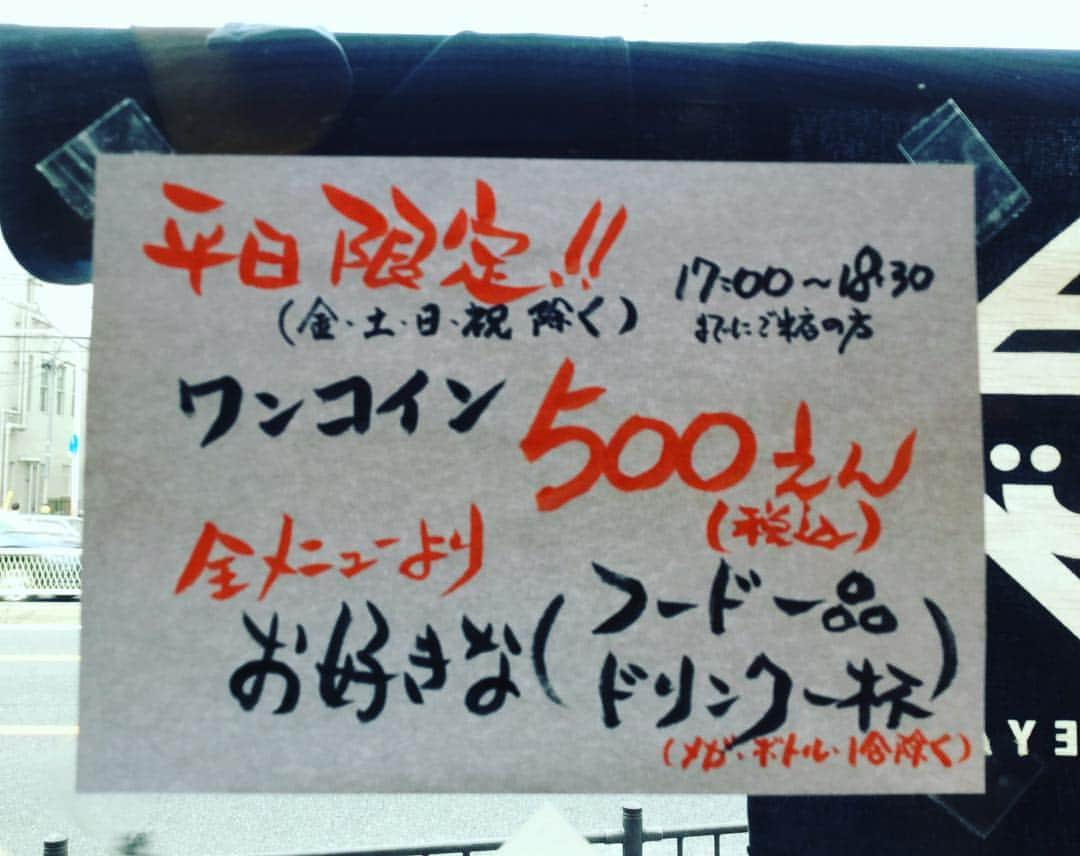 平日限定!!
(金・土・日・祝 除く)
17:00〜18:30
までにご来店の店
ワンコイン 500えん
(税込)
全メニューより
お好きな(フード一品
ドリンク一杯)
(メガ・ボトル・1合除く)
EYA